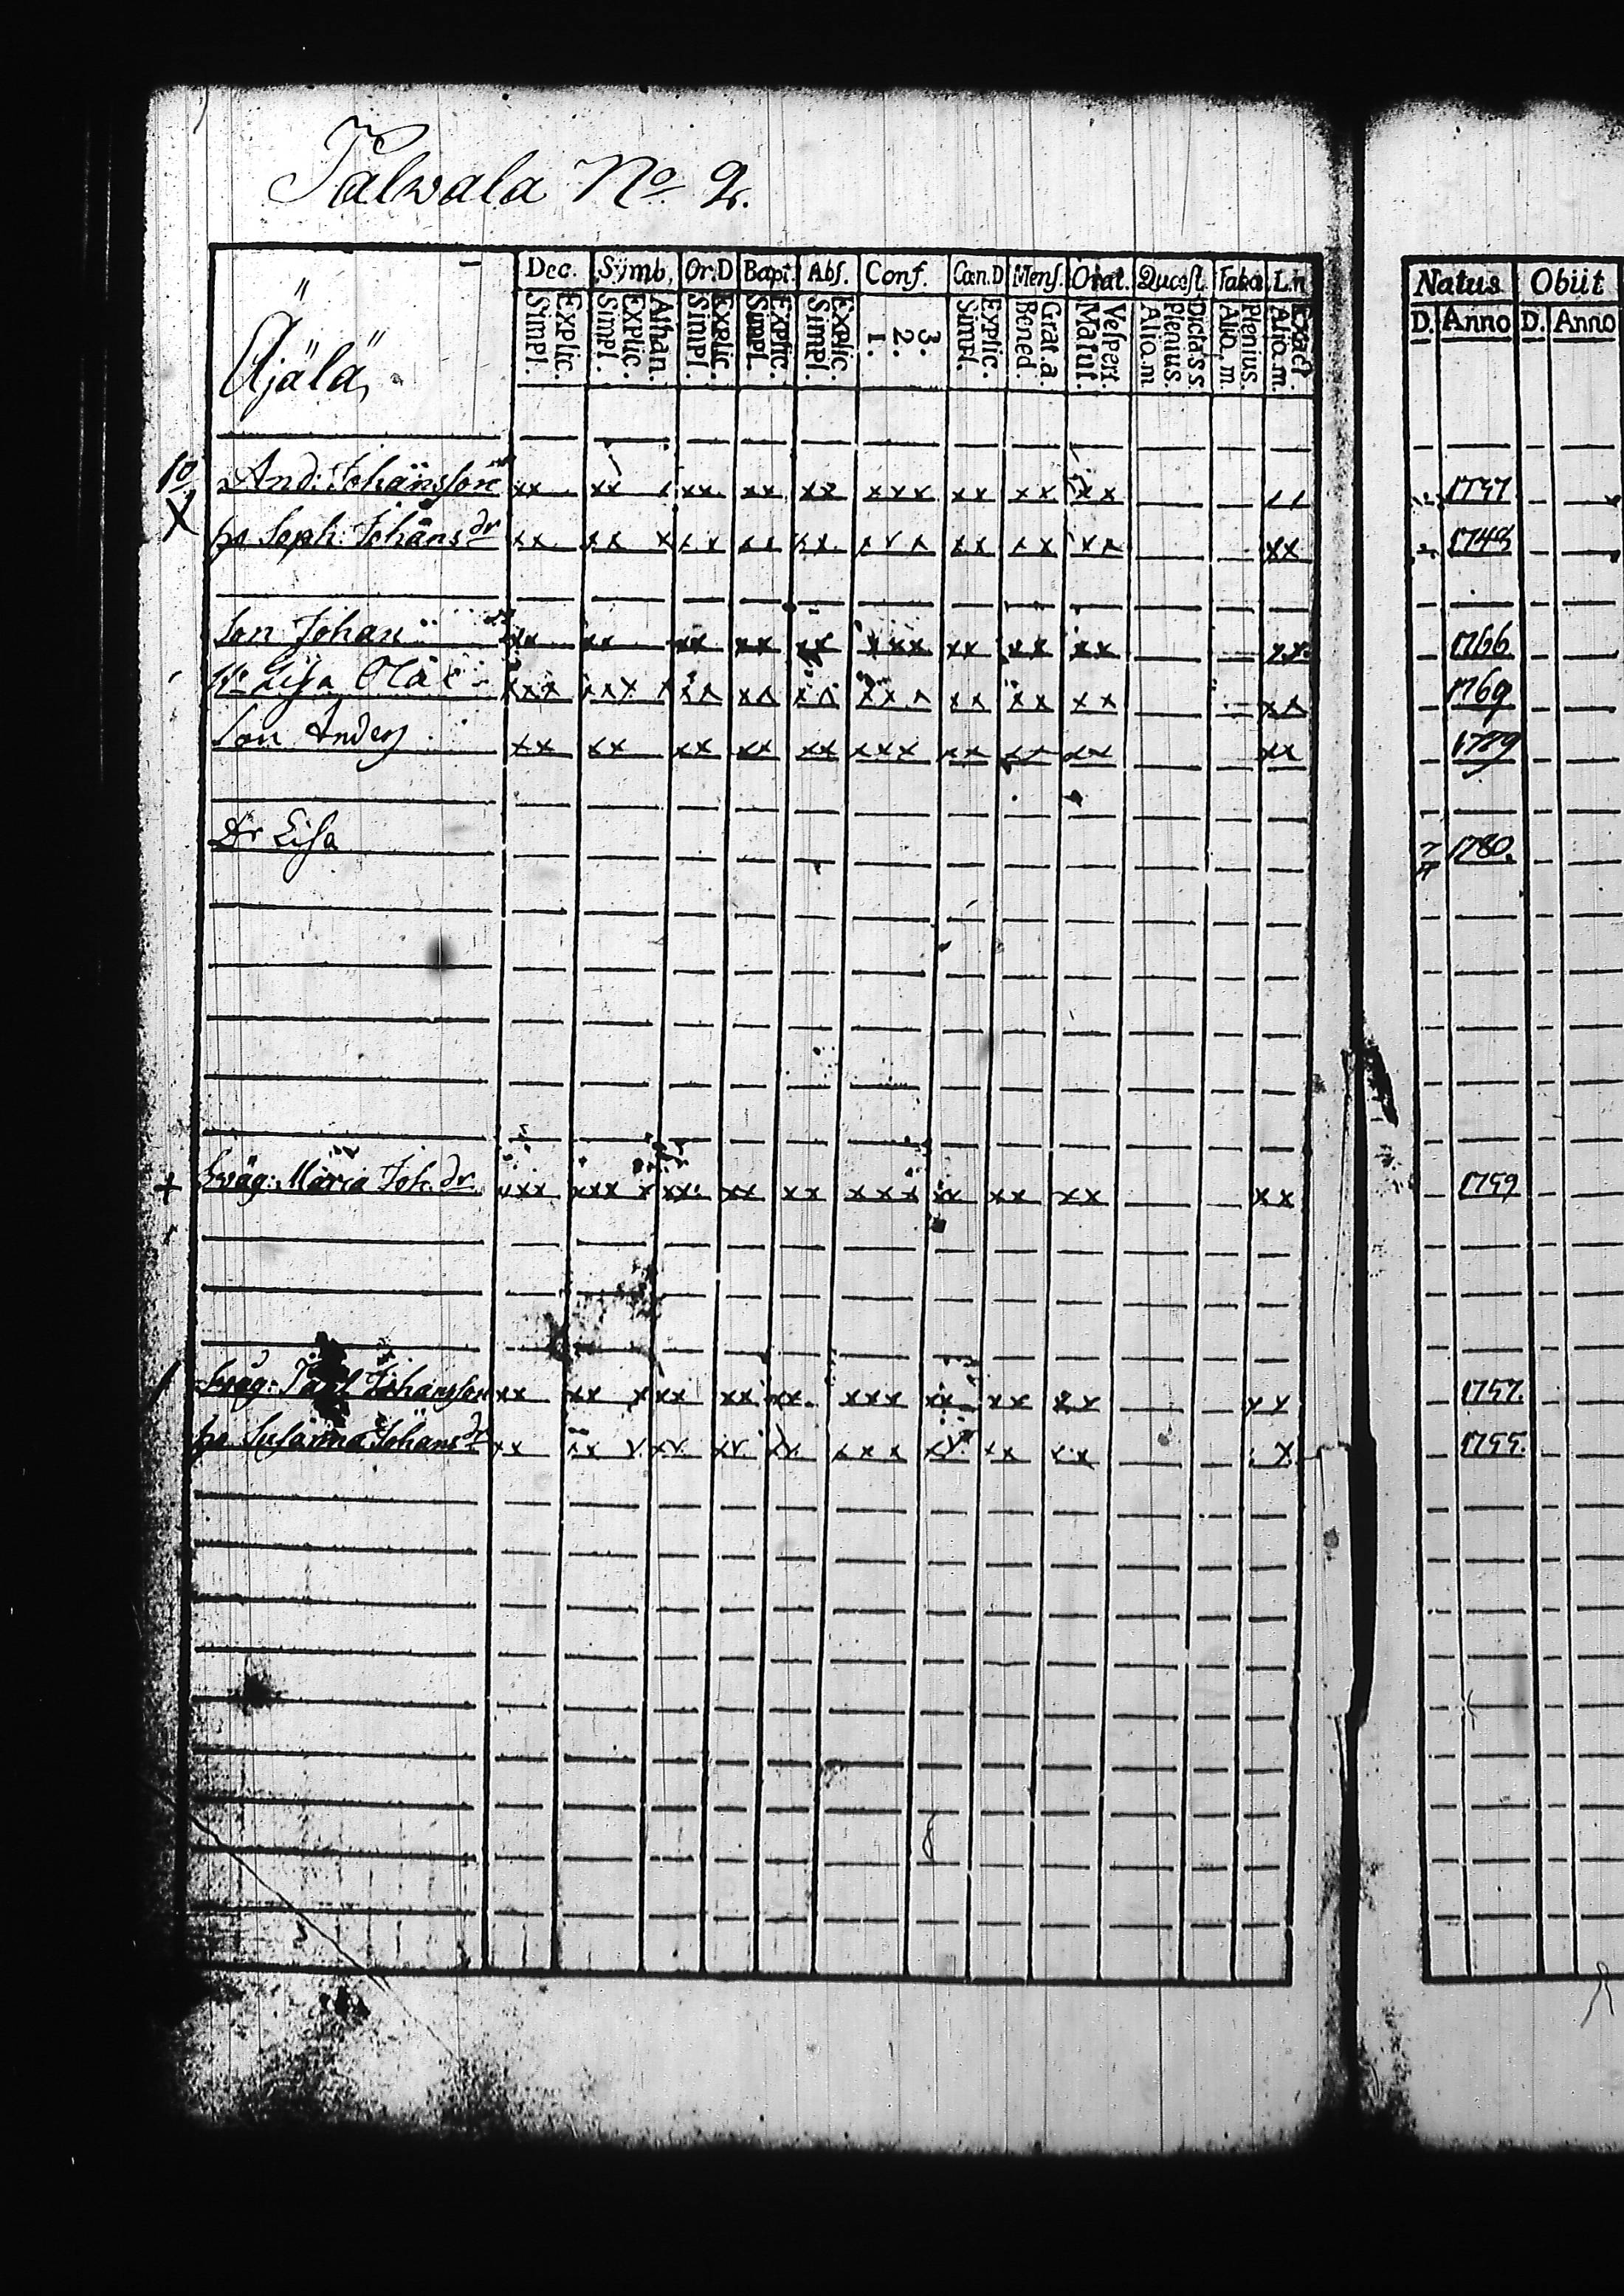 Talwala No. 2.
Dec. Symb. Or.D Bapt. Abs. Conf. Can.D Mens. Orat. Quæst. Taba L.n
Natus Obiit
Explic. Simpl. Athan. Explic. Simpl. Explic. Simpl. Explic. Simpl. Explic. Simpl. 3. 2. 1. Explic. Simpl. Grat.a. Bened. Vespert. Matut. Dicta s s Plenius. Aliq.m. Plenius. Aliq.m. Exact. Aliq.m.
D. Anno D. Anno
Äjälä
10 And: Johansson xx xx x xx xx xx xxx xx xx xx xx
X ho Soph: Johans dr xx xx x xx xx xx xxx xx xx xx xx
Son Johan xx xx xx xx xx xxx xx xx xx xx 1766
Lisa xxx xxx x xx xx xx xxx xx xx xx xx 1769
Son Anders xx xx xx xx xx xxx xx xx xx xx 1789
Dr Lisa 1780.
+ Swäg: Maria Joh. dr xxx xxx x xx xx xx xxx xx xx xx xx 1759
Swåg: Johansson xx xx x xx xx xx xxx xx xx xx xx 1757.
ho Susanna Johans dr xx xx x xx xx xx xxx xx xx xx x 1755.